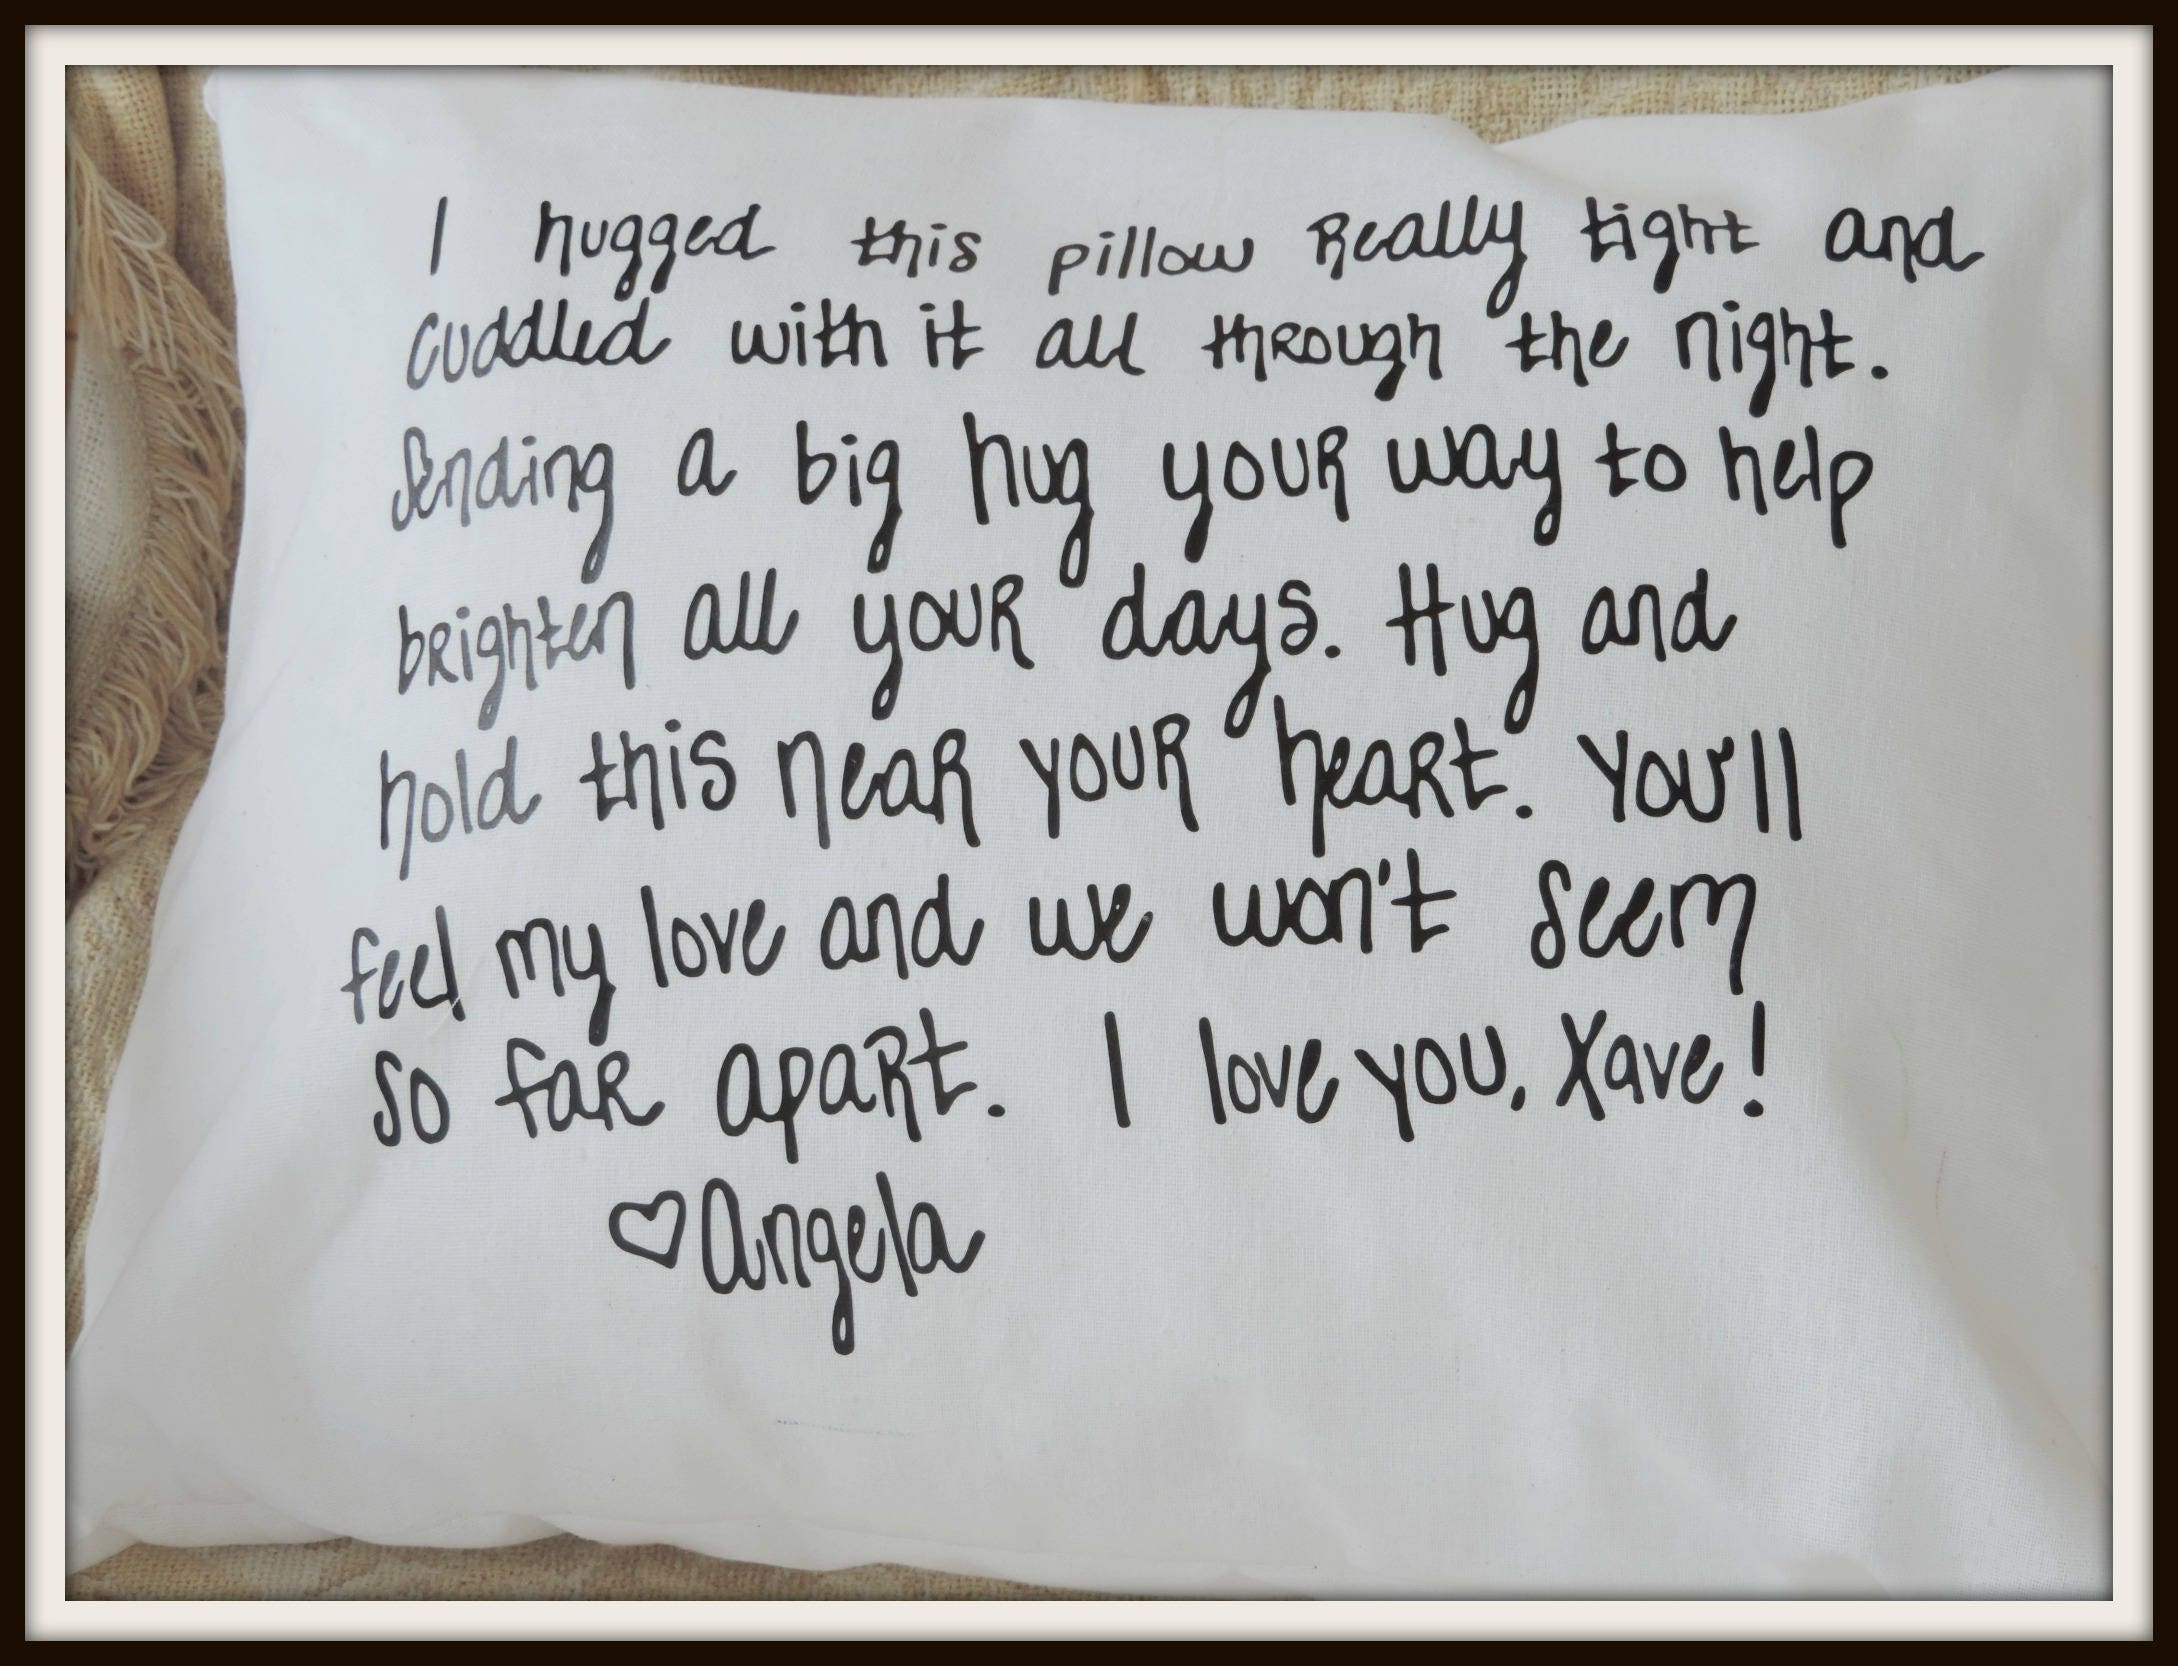 I hugged this pillow Really tight and
cuddled with it all through the night.
Sending a big hug your way to help
brighten all your days. Hug and
hold this near your heart. You'll
feel my love and we won't seem
so far apart. I love you, Xave!
♡Angela